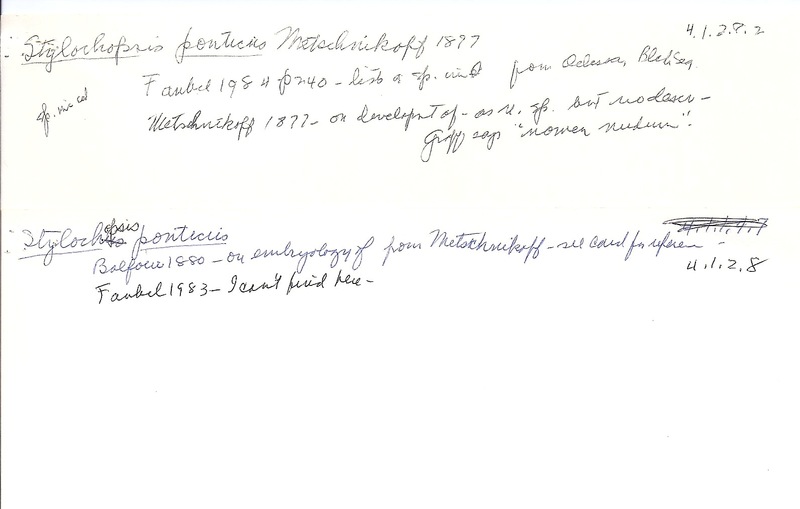 4.1.2.8.2
Stylochopsis ponticus Metschnikoff 1877
Faubel 1984 p240 - lists a sp. inq from Odessa, Black Sea.
sp. inc sed
Metschnikoff 1877 - on developt of - as n. sp. but no descr -
Graff says "nomen nudum".
Stylochopsis ponticus
Balfour 1880 - on embryology of from Metschnikoff - see card for referen -
4.1.2.8
Faubel 1983 - I can't find here -